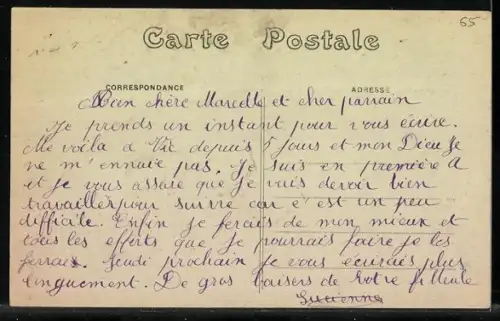 65
Carte Postale
CORRESPONDANCE
ADRESSE
Bien chère Marcelle et cher parrain
Je prends un instant pour vous écrire.
Me voilà à Vic depuis 5 jours et mon Dieu je
ne m'ennuie pas. Je suis en première A
et je vous assure que je vais devoir bien
travailler pour suivre car c'est un peu
difficile. Enfin je ferais de mon mieux et
tous les efforts que je pourrais faire je les
ferais. Jeudi prochain je vous écrirais plus
longuement. De gros baisers de votre filleule
Lucienne